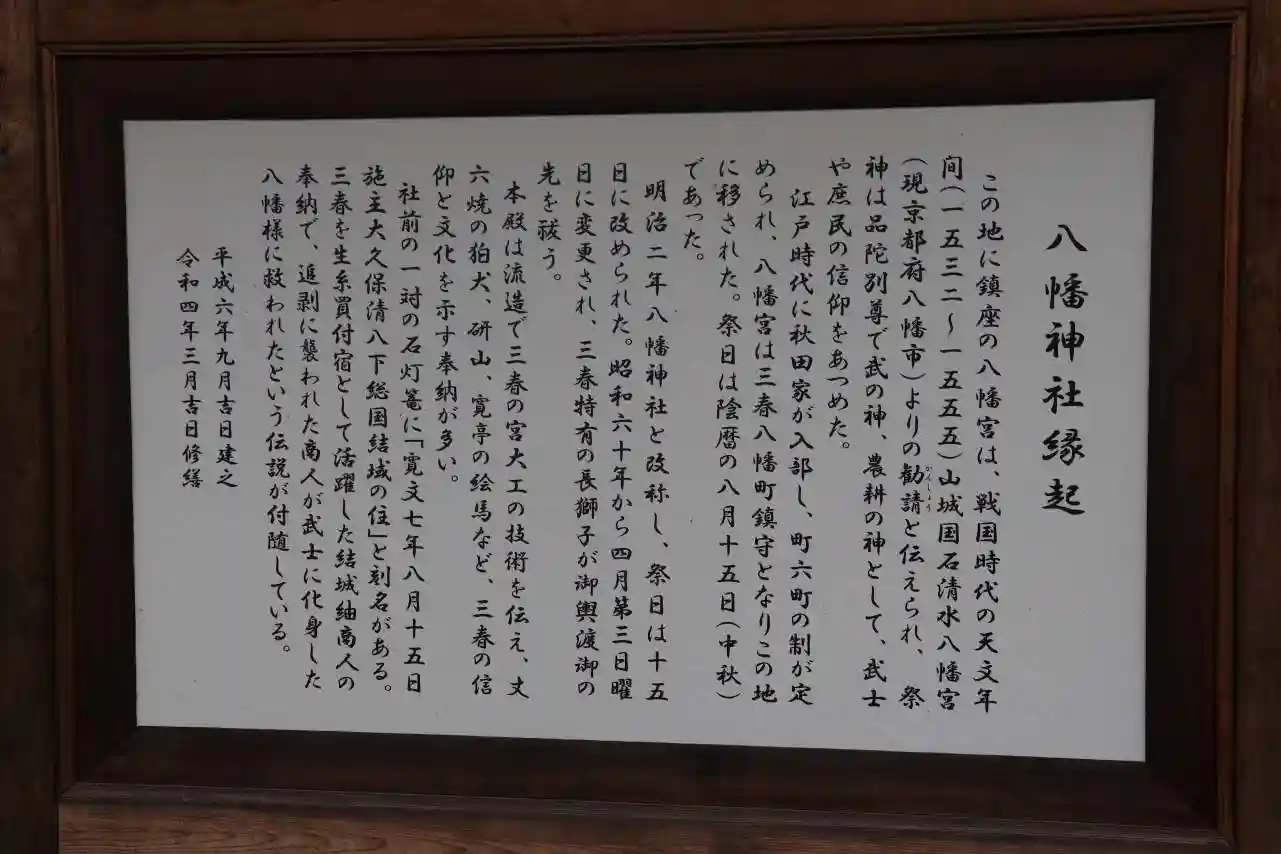 八幡神社縁起
この地に鎮座の八幡宮は、戦国時代の天文年
間(一五三二〜一五五五)山城国石清水八幡宮
(現京都府八幡市)よりの勧請と伝えられ、祭
かんじょう
神は品陀別尊で武の神、農耕の神として、武士
や庶民の信仰をあつめた。
江戸時代に秋田家が入部し、町六町の制が定
められ、八幡宮は三春八幡町鎮守となりこの地
に移された。祭日は陰暦の八月十五日(中秋)
であった。
明治二年八幡神社と改称し、祭日は十五
日に改められた。昭和六十年から四月第三日曜
日に変更され、三春特有の長獅子が御輿渡御の
先を祓う。
本殿は流造で三春の宮大工の技術を伝え、丈
六焼の狛犬、研山、寛亭の絵馬など、三春の信
仰と文化を示す奉納が多い。
社前の一対の石灯篭に「寛文七年八月十五日
施主大久保清八下総国結城の住」と刻名がある。
三春を生糸買付宿として活躍した結城紬商人の
奉納で、追剥に襲われた商人が武士に化身した
八幡様に救われたという伝説が付随している。
平成六年九月吉日建之
令和四年三月吉日修繕